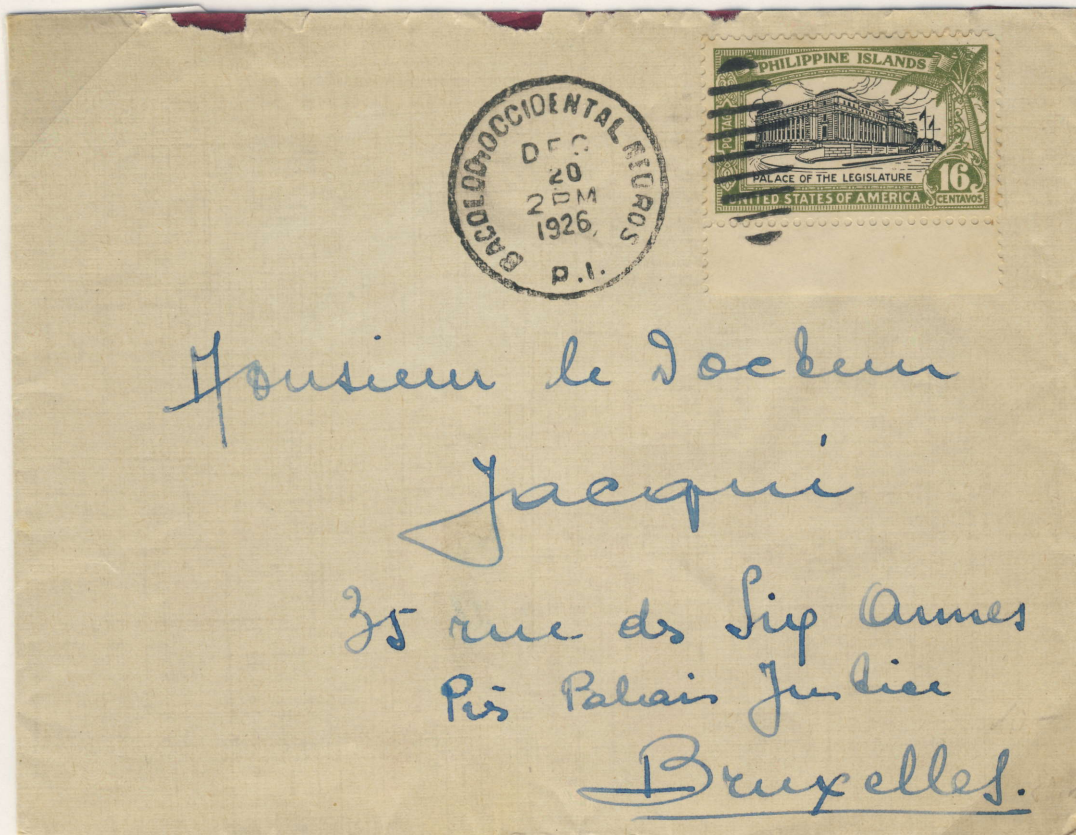 BACOLOD, OCCIDENTAL NEGROS
DEC
20
2 PM
1926
P.I.
PHILIPPINE ISLANDS
POSTAGE
PALACE OF THE LEGISLATURE
16
CENTAVOS
UNITED STATES OF AMERICA
Monsieur le Docteur
Jacqui
35 rue des Six Aunes
Près Palais Justice
Bruxelles.